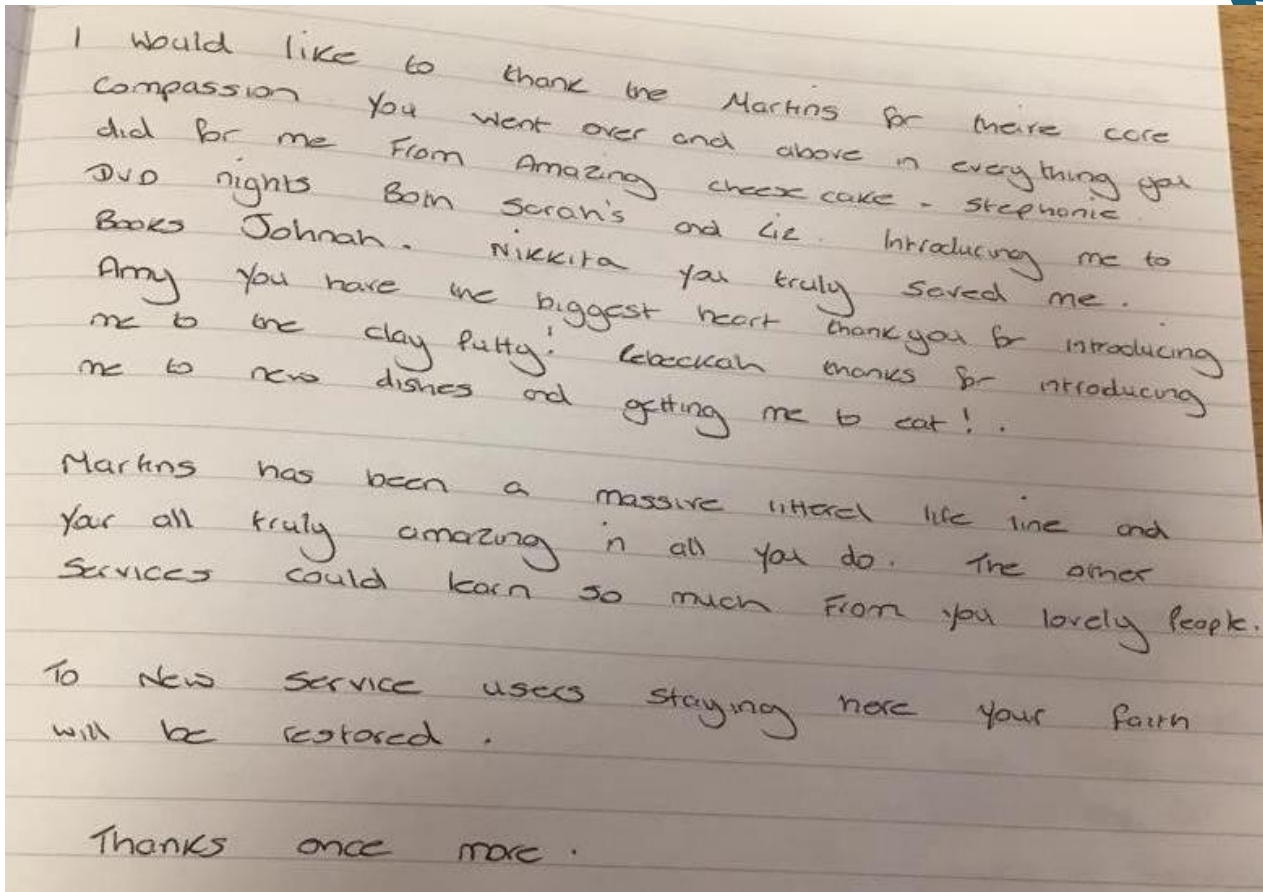 I would like to thank the Martins for theire care
Compassion You went over and above in everything you
did for me From Amazing cheese cake - Stephanie.
DVD nights Both Sarah's and Liz. Introducing me to
Books Johnah. Nikkita you truly saved me.
Amy you have the biggest heart thank you for introducing
me to the clay Putty! Rebeckah thanks for introducing
me to new dishes and getting me to eat! .
Martins has been a massive litteral life line and
Your all truly amazing in all you do. The other
Services could learn so much From you lovely People.
To New Service users staying here your faith
will be restored .
Thanks once more .